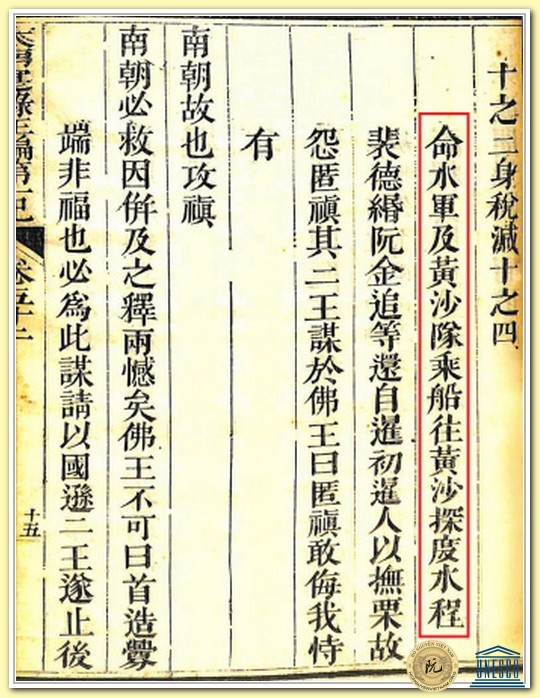 十之三身稅減十之四
命水軍及黃沙隊乘船往黃沙探度水程
裴德緡阮金追等還自暹初暹人以撫栗故
怨匿禛其二王謀於佛王曰匿禛敢侮我恃
有
南朝故也攻禛
南朝必救因併及之釋兩憾矣佛王不可曰首造釁
端非福也必爲此謀請以國遜二王遂止後
大南寔錄正編第一紀
卷五十二
十五
阮
UNESCO